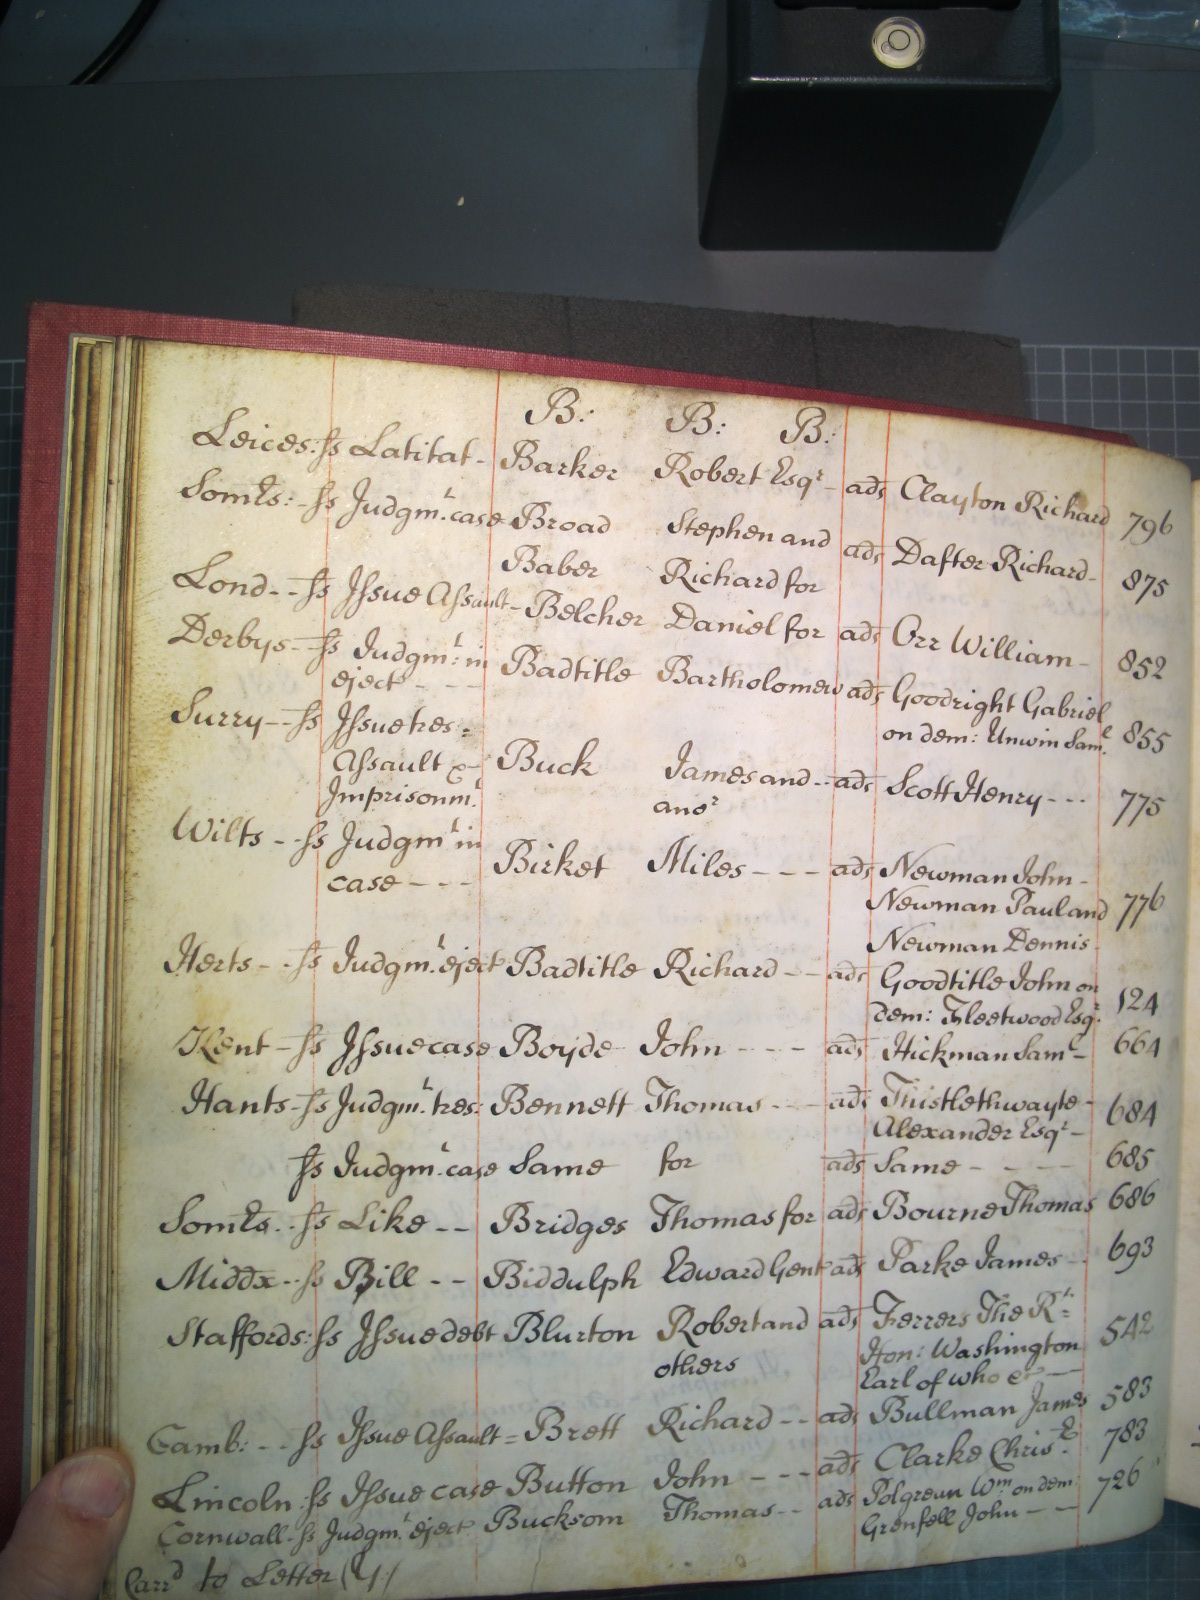 B: B: B:
Leices: ss Latitat - Barker Robert Esqr - ads Clayton Richard 796
Somts: - ss Judgmt. case Broad Stephen and ads Dafter Richard - 875
Baber Richard for
Lond - - ss Issue Assault - Belcher Daniel for ads Orr William - 852
Derbys - ss Judgmt: in Badtitle Bartholomew ads Goodright Gabriel 855
eject - - - on dem: Unwin Saml.
Surry - - ss Issue tres =
Assault & Buck James and - - ads Scott Henry - - - 775
Imprisonmt. anor
Wilts - - ss Judgmt in Birket Miles - - - ads Newman John -
case - - - Newman Paul and 776
Newman Dennis
Herts - - ss Judgmt. eject Badtitle Richard - - ads Goodtitle John on 124
dem: Fleetwood Esqr.
Kent - ss Issue case Boyde John - - - ads Hickman Saml - 664
Hants - ss Judgmt. tres: Bennett Thomas - - - ads Thistlethwayte - 684
Alexander Esqr -
ss Judgmt. case Same for ads Same - - - - 685
Somts. - ss Like - - Bridges Thomas for ads Bourne Thomas 686
Middx - - ss Bill - - Biddulph Edward Gent ads Parke James - - 693
Staffords: ss Issue debt Blurton Robert and ads Ferrers The Rt: 542
others Hon: Washington
Earl of who &c -
Camb: - - ss Issue Assault = Brett Richard - - ads Bullman James 583
Lincoln: ss Issue case Button John - - - ads Clarke Chrisr. 783
Cornwall - ss Judgmt. eject Bucksom Thomas - - ads Polgreun Wm on dem: 726
Grenfell John - -
Carrd to Letter (Y)